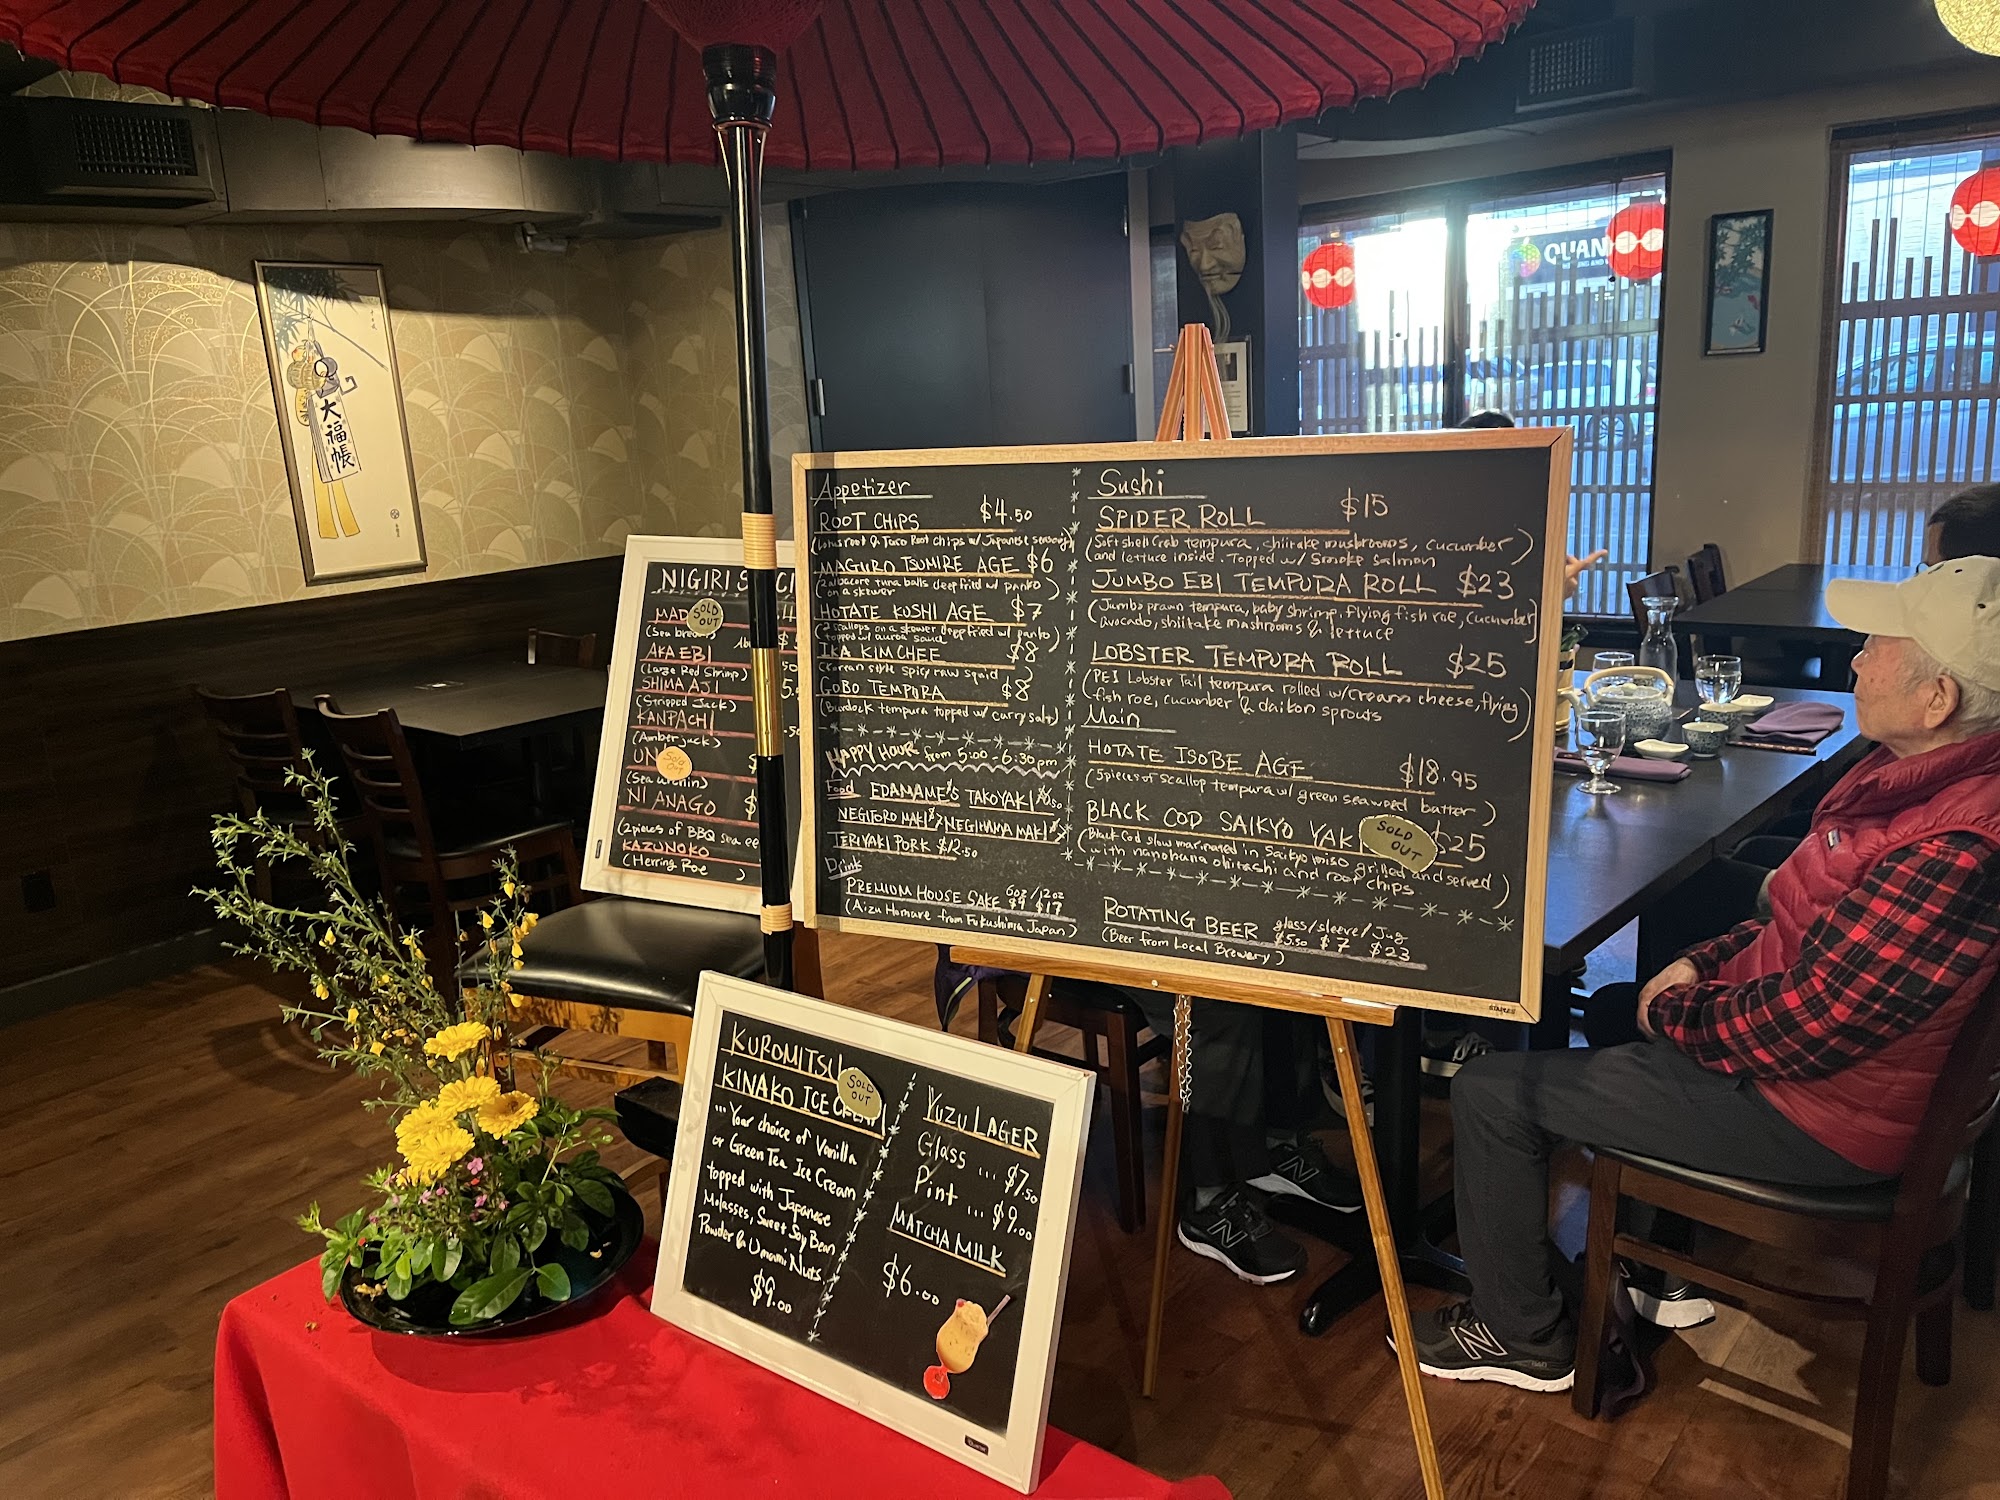 大
福
帳
QUAN
NIGIRI
SOLD OUT
(Sea bream)
AKA EBI
(Large Red Shrimp)
SHIMA AJI
(Stripped Jack)
KANPACHI
(Amber jack)
UN
Sold Out
(Sea urchin)
NI ANAGO $
(2 pieces of BBQ sea ee
KAZUNOKO
(Herring Roe )
Appetizer
ROOT CHIPS $4.50
(Lotus root & Taro Root chips w/ Japanese seasoning)
MAGURO TSUMIRE AGE $6
(2 albacore tuna balls deep fried w/ panko
on a skewer )
HOTATE KUSHI AGE $7
(2 scallops on a skewer deep fried w/ panko
topped w/ auroa sauce )
IKA KIMCHEE $8
(Korean style spicy raw squid )
GOBO TEMPURA $8
(Burdock tempura topped w/ curry salt)
HAPPY HOUR from 5:00-6:30pm
Food EDAMAME $5 TAKOYAKI
NEGITORO MAKI $7 NEGIHAMA MAKI
TERIYAKI PORK $12.50
Drink
PREMIUM HOUSE SAKE 6oz/12oz $9 $17
(Aizu Homare from Fukushima Japan)
Sushi
SPIDER ROLL $15
(Soft shell Crab tempura, chiitake mushrooms, cucumber
and lettuce inside. Topped w/ Smoke Salmon )
JUMBO EBI TEMPURA ROLL $23
(Jumbo prawn tempura, baby shrimp, flying fish roe, cucumber
avocado, shiitake mashrooms & lettuce )
LOBSTER TEMPURA ROLL $25
(PEI Lobster Tail tempura rolled w/cream cheese, flying
fish roe, cucumber & daikon sprouts )
Main
HOTATE ISOBE AGE $18.95
(5 pieces of scallop tempura w/ green seaweed batter )
BLACK COD SAIKYO YAK SOLD OUT $25
(Black Cod slow marinated in Saikyo miso grilled and served
with nanohana ohitashi and root chips )
ROTATING BEER glass/sleeve/Jug
$5.50 $7 $23
(Beer from Local Brewery)
STAPLES
KUROMITSU
KINAKO ICE CREAM
SOLD OUT
... Your choice of Vanilla
or Green Tea Ice Cream
topped with Japanese
Molasses, Sweet Soy Bean
Powder & Umami Nuts.
$9.00
YUZU LAGER
Glass ... $7.50
Pint ... $9.00
MATCHA MILK
$6.00
N
N